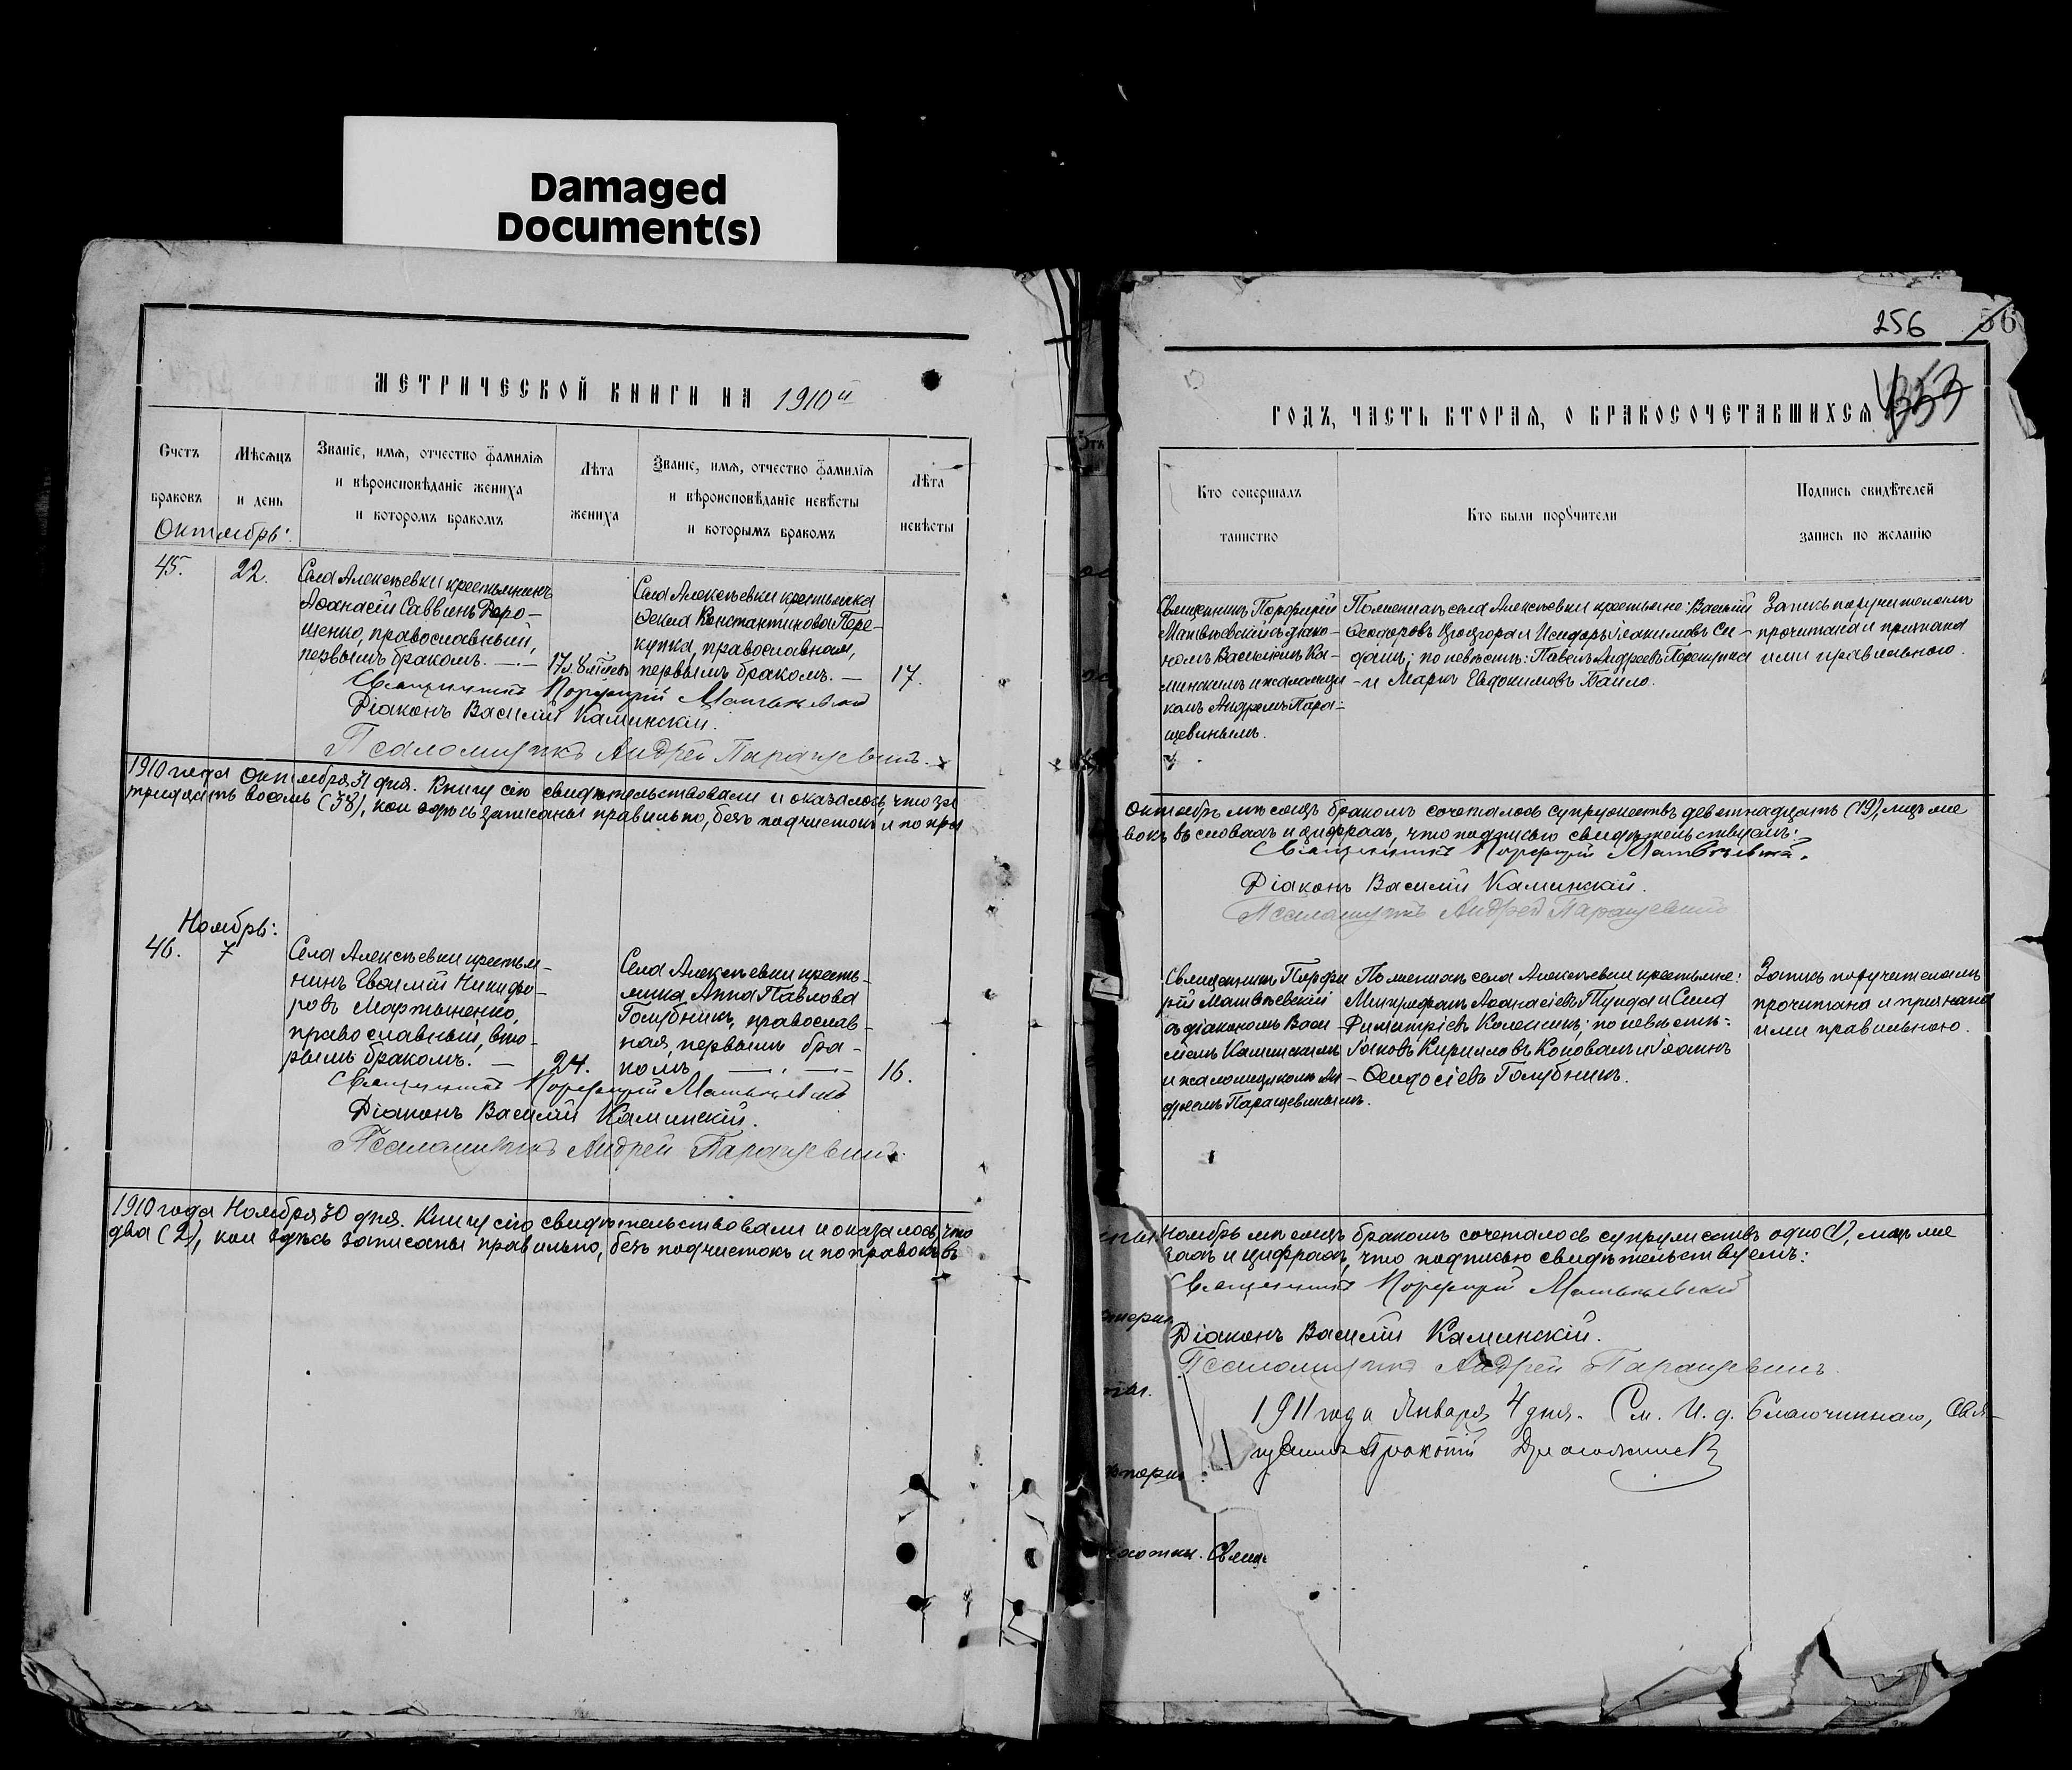 Damaged
Document(s)
МЕТРИЧЕСКОЙ КНИГИ НА 1910й
Счетъ браковъ
Мѣсяцъ и день
Званіе, имя, отчество фамилія
и вѣроисповѣданіе жениха
и которомъ бракомъ
Лѣта
жениха
Званіе, имя, отчество фамилія
и вѣроисповѣданіе невѣсты
и которымъ бракомъ
Лѣта
невѣсты
Октябрь:
45.
22.
Села Алексѣевки крестьянинъ
Аѳанасій Саввинъ Доро-
щенко, православный,
первымъ бракомъ. —
17 и 8 мѣсяц.
Села Алексѣевки крестьянка
Ѳекла Константинова Пере-
купка, православная,
первымъ бракомъ. —
17.
Священникъ Порфирій Матвѣевскій
Діаконъ Василій Каминскій.
Псаломщикъ Андрей Паращевинъ.
1910 года Октября 31 дня. Книгу сію свидѣтельствовали и оказалось, что за
тридцать восемь (38), кои здѣсь записаны правильно, безъ подчистокъ и попра
Ноябрь:
46.
7
Села Алексѣевки крестья-
нинъ Евѳимій Никифо-
ровъ Мартыненко,
православный, вто-
рымъ бракомъ. —
24.
Села Алексѣевки кресть-
янка Анна Павлова
Голубникъ, православ-
ная, первымъ бра-
комъ
16.
Священникъ Порфирій Матвѣевскій
Діаконъ Василій Каминскій.
Псаломщикъ Андрей Паращевинъ.
1910 года Ноября 30 дня. Книгу сію свидѣтельствовали и оказалось, что
два (2), кои здѣсь записаны правильно, безъ подчистокъ и поправокъ въ
256
56
353
ГОДЪ, ЧАСТЬ ВТОРАЯ, О БРАКОСОЧЕТАВШИХСЯ
Кто совершалъ
таинство
Кто были поручители
Подпись свидѣтелей
запись по желанію
Священникъ Порфирій
Матвѣевскій съ діако-
номъ Василіемъ Ка-
минскимъ и псаломщи-
комъ Андреемъ Пара-
щевинымъ.
По женихѣ села Алексѣевки крестьяне: Василій
Ѳеодоровъ и Исидоръ Іоакимовъ
по невѣстѣ: Павелъ Андреевъ Перекупка
и Маркъ Евдокимовъ
Запись поручителямъ
прочитана и признана
ими правильною.
Октябрь мѣсяцъ бракомъ сочеталось супружествъ девятнадцать (19), лицъ же
вокъ въ словахъ и цифрахъ, что подписью свидѣтельствуемъ:
Священникъ Порфирій Матвѣевскій.
Діаконъ Василій Каминскій.
Псаломщикъ Андрей Паращевинъ
Священникъ Порфи
рій Матвѣевскій
съ діакономъ Васи-
ліемъ Каминскимъ
и псаломщикомъ Ан-
дреемъ Паращевинымъ.
По женихѣ села Алексѣевки крестьяне:
Митрофанъ Аѳанасіевъ Тунда и Сила
Димитріевъ Колесникъ; по невѣстѣ:
Іаковъ Кирилловъ Коновалъ и Іоаннъ
Ѳеодосіевъ Голубникъ.
Запись поручителямъ
прочитана и признана
ими правильною.
Ноябрь мѣсяцъ бракомъ сочеталось супружествъ одно (1), лицъ же
вахъ и цифрахъ, что подписью свидѣтельствуемъ:
Священникъ Порфирій Матвѣевскій
Діаконъ Василій Каминскій.
Псаломщикъ Андрей Паращевинъ.
1911 года Января 4 дня. См. И. д. благочиннаго, Свя-